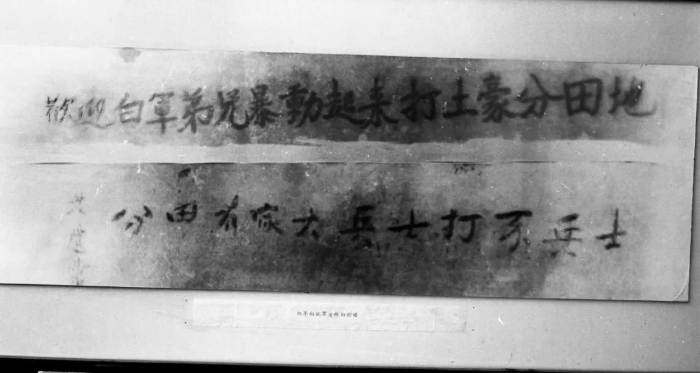 歡迎白軍弟兄暴動起来打土豪分田地
士兵不打士兵大家有田分
共產黨